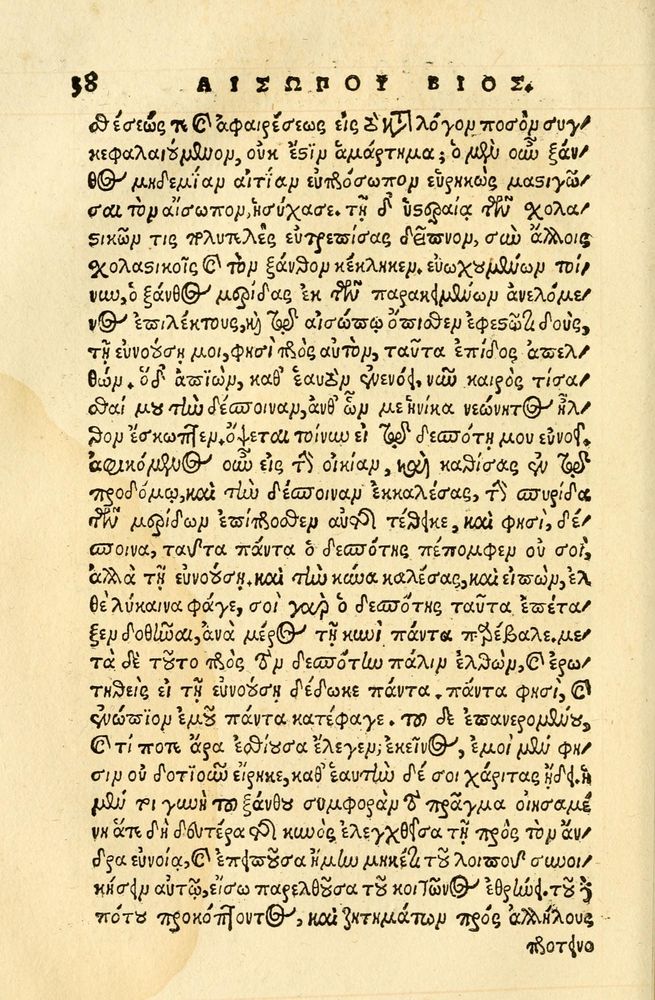 38 ΑΙΣΩΠΟΥ ΒΙΟΣ.
θέσεώς τε καὶ ἀφαιρέσεως εἰς τὸν λόγον ποσὸν συγ-
κεφαλαιούμενον, οὐκ ἔστιν ἁμάρτημα; ὁ μὲν οὖν ξάν-
θος μηδεμίαν αἰτίαν εὐπρόσωπον εὑρηκὼς μαστιγῶ-
σαι τὸν αἴσωπον, ἡσύχασε. τῇ δ' ὑστεραίᾳ τῶν σχολα-
στικῶν τις πολυτελὲς εὐτρεπίσας δεῖπνον, σὺν ἄλλοις
σχολαστικοῖς καὶ τὸν ξάνθον κέκληκεν. εὐωχουμένων τοί-
νυν, ὁ ξάνθος μερίδας ἐκ τῶν παρακειμένων ἀνελόμε-
νος ἐπιλέκτους, καὶ τῷ αἰσώπῳ ὄπισθεν ἐφεστῶτι δούς,
τῇ εὐνούσῃ μοι, φησὶ πρὸς αὐτὸν, ταῦτα ἐπίδος ἀπελ-
θών. ὁ δ' ἀπιὼν, καθ' ἑαυτὸν ἐνενόει. νῦν καιρὸς τίσα-
σθαί μου τὴν δέσποιναν, ἀνθ' ὧν με ἡνίκα νεώνητος ἦλ-
θον ἔσκωπτεν. ὄψεται τοίνυν εἰ τῷ δεσπότῃ μου εὐνοεῖ.
ἀφικόμενος οὖν εἰς τὴν οἰκίαν, καὶ καθίσας ἐν τῷ
προδόμῳ, καὶ τὴν δέσποιναν ἐκκαλέσας, τὴν σπυρίδα
τῶν μερίδων ἐπίπροσθεν αὐτῆς τέθεικε, καὶ φησὶ, δέ-
σποινα, ταῦτα πάντα ὁ δεσπότης πέπομφεν οὐ σοὶ,
ἀλλὰ τῇ εὐνούσῃ. καὶ τὴν κύνα καλέσας, καὶ εἰπὼν, ἐλ-
θὲ λύκαινα φάγε, σοὶ γὰρ ὁ δεσπότης ταῦτα ἐπέτα-
ξεν δοθῆναι, ἀνὰ μέρος τῇ κυνὶ πάντα προέβαλε. με-
τὰ δὲ τοῦτο πρὸς τὸν δεσπότην πάλιν ἐλθὼν, καὶ ἐρω-
τηθεὶς εἰ τῇ εὐνούσῃ δέδωκε πάντα. πάντα φησὶ, καὶ
ἐνώπιον ἐμοῦ πάντα κατέφαγε. τοῦ δὲ ἐπανερομένου,
καὶ τί ποτε ἄρα ἐσθίουσα ἔλεγεν; ἐκεῖνος, ἐμοὶ μὲν φη-
σὶν οὐδοτιοῦν εἴρηκε, καθ' ἑαυτὴν δέ σοι χάριτας ᾔδει. ἡ
μέν τοι γυνὴ τοῦ ξάνθου συμφορὰν τὸ πρᾶγμα οἰησαμέ
νη ἅτε δὴ δευτέρα τῆς κυνὸς ἐλεγχθεῖσα τῇ πρὸς τὸν ἄν-
δρα εὐνοίᾳ, καὶ ἐπειποῦσα ἦ μὴν μηκέτι τοῦ λοιποῦ συνοι-
κήσειν αὐτῷ, εἴσω παρελθοῦσα τοῦ κοιτῶνος ἐθρήνει. τοῦ δὲ
πότου προκόπτοντος, καὶ ζητημάτων πρὸς ἀλλήλους
προτεινο